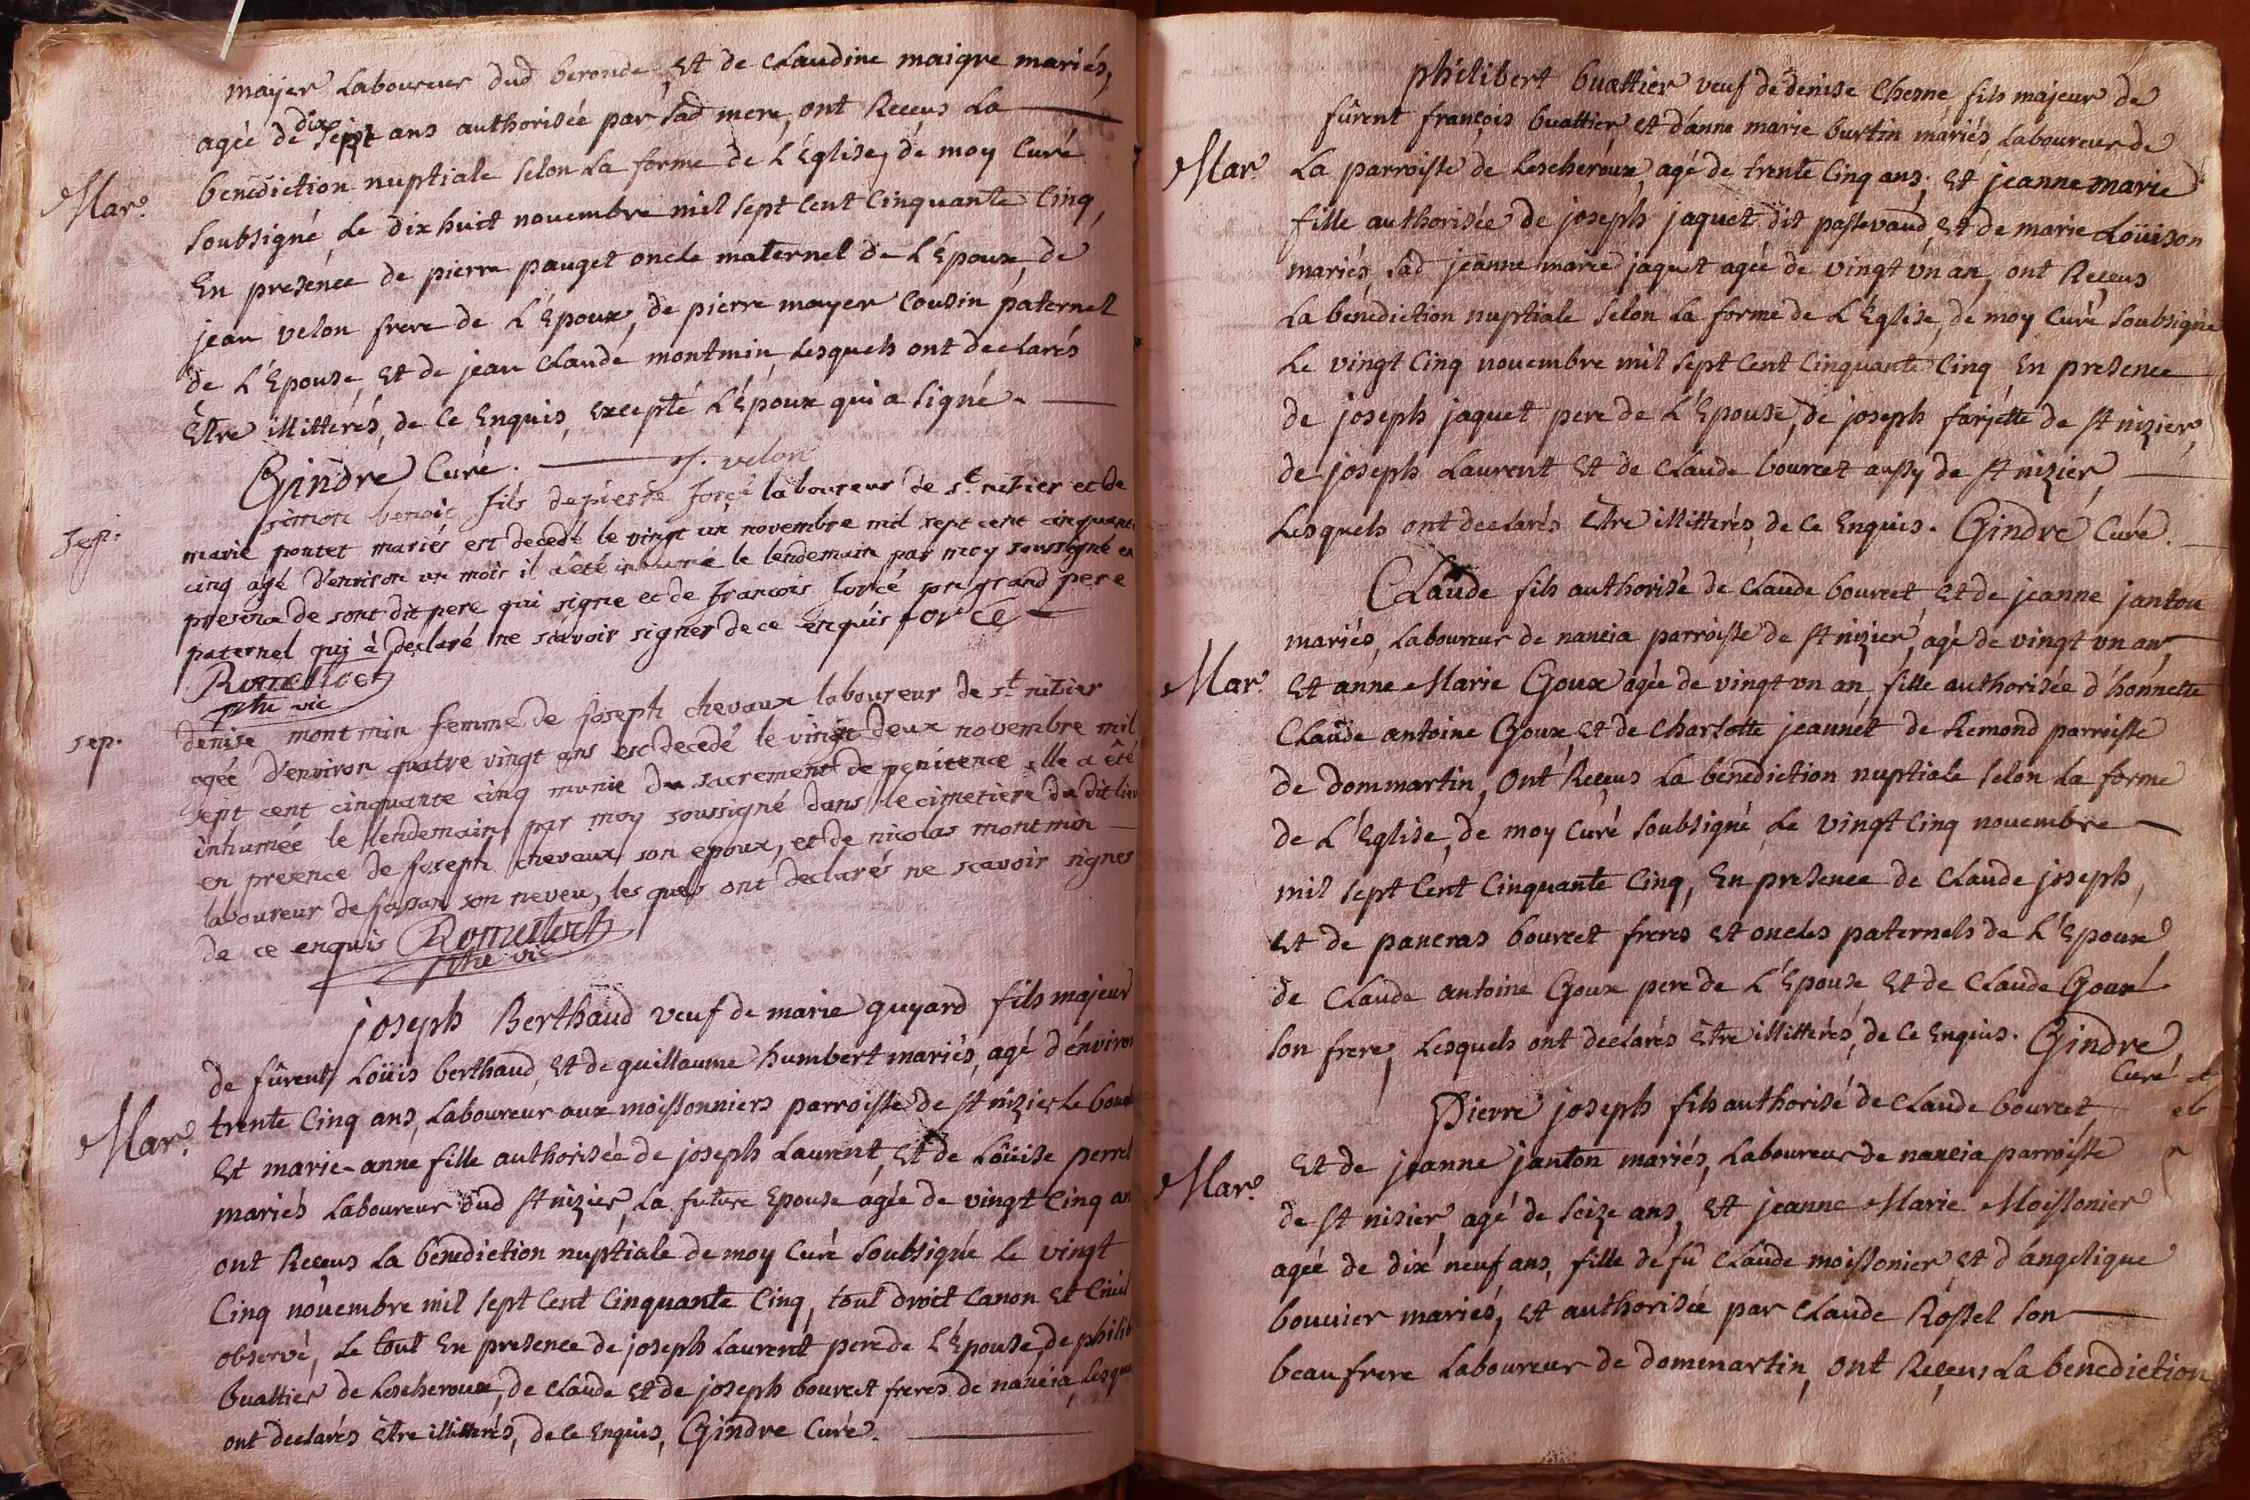 mayer Laboureur dud beronde, et de claudine maigre mariés,
agée de dix sept ans authorisée par sad mere, ont Receus La
Mar.
benediction nuptiale selon La forme de L'Eglise, de moy Curé
soubsigné, Le dix huit novembre mil sept Cent Cinquante Cinq,
En presence de pierre pauget oncle maternel de L'Epoux, de
jean velon frere de L'Epoux, de pierre mayer Cousin paternel
de L'Epouse, et de jean claude montmin, Lesquels ont declarés
Être illitterés, de Ce Enquis, excepté L'Époux qui a signé.
Gindre Curé. J. velon
simon benoit fils de pierre forcé laboureur de st nizier et de
Sep.
marie pontet mariés est decedé le vingt un novembre mil sept cent cinquante
cinq agé d'environ un mois il a été inhumé le lendemain par moy soussigné en
presence de sont dit pere qui signe et de francois forcé son grand pere
paternel qui à declaré ne scavoir signer de ce enquis forcé
Romelloet
ptre vic
denise montmin femme de joseph chevaux laboureur de st nizier
sep.
agée d'environ quatre vingt ans est decedé le vingt deux novembre mil
sept cent cinquante cinq munie du sacrement de penitence elle a été
inhumée le lendemain par moy soussigné dans le cimetiere du dit lieu
en preence de joseph chevaux son epoux, et de nicolas montmin
laboureur de son neveu, les quels ont declarés ne scavoir signer
de ce enquis Romelloet
ptre vic
joseph Berthaud veuf de marie guyard fils majeur
de fûrent Loüis berthaud, et de guillaume humbert mariés, agé d'environ
Mar.
trente Cinq ans, Laboureur aux moissonniers parroisse de st nizier le bouch
Et marie-anne fille authorisée de joseph Laurent, et de Loüise perret
mariés Laboureur dud st nizier, La future Epouse agée de vingt Cinq an
ont Receus La bénediction nuptiale de moy Curé soubsigné le vingt
Cinq novembre mil sept Cent Cinquante Cinq, tout droit Canon et Civil
observé, Le tout En presence de joseph Laurent pere de L'Epouse, de philib
buattier de Lescheroux, de claude et de joseph bourcet freres de nancia, Lesque
ont declarés être illitterés, de Ce Enquis, Gindre Curé.
philibert buattier veuf de denise Chesne, fils majeur de
fûrent françois buattier et d'anne marie burtin mariés Laboureur de
Mar.
La parroisse de Lescheroux, agé de trente Cinq ans, et jeanne marie
fille authorisée de joseph jaquet dit passevaud, et de marie Loüison
mariés, sad jeanne marie jaquet agée de vingt un an, ont Receus
La bénediction nuptiale selon La forme de L'Eglise, de moy Curé soubsigné
Le vingt Cinq novembre mil sept Cent Cinquante Cinq En presence
de joseph jaquet pere de L'Epouse, de joseph farjette de st nizier,
de joseph Laurent et de claude bourcet aussy de st nizier,
Lesquels ont declarés être illitterés, de Ce Enquis. Gindre Curé.
Claude fils authorisé de claude bourcet, et de jeanne janton
mariés, Laboureur de nancia parroisse de st nizier, agé de vingt un an,
Mar.
et anne Marie Goux agée de vingt un an, fille authorisée d'honnette
Claude antoine Goux, et de Charlotte jeannet de Remond parroisse
de dommartin, Ont Receus La bénediction nuptiale selon La forme
de L'Eglise, de moy Curé soubsigné, Le vingt Cinq novembre
mil sept Cent Cinquante Cinq, En presence de claude joseph,
et de pancras bourcet freres et oncles paternels de L'Epoux
de Claude antoine Goux pere de L'Epouse et de Claude Goux
son frere, Lesquels ont declarés être illitterés, de Ce Enquis. Gindre
Curé
Pierre joseph fils authorisé de Claude bourcet,
et de jeanne janton mariés, Laboureur de nancia parroisse
Mar.
de st nisier, agé de seize ans, et jeanne Marie Moissonier
agée de dix neuf ans, fille de fû Claude moissonier, et d'angelique
bouvier mariés, et authorisée par claude Rossel son
beau frere Laboureur de dommartin, ont Receus La benediction